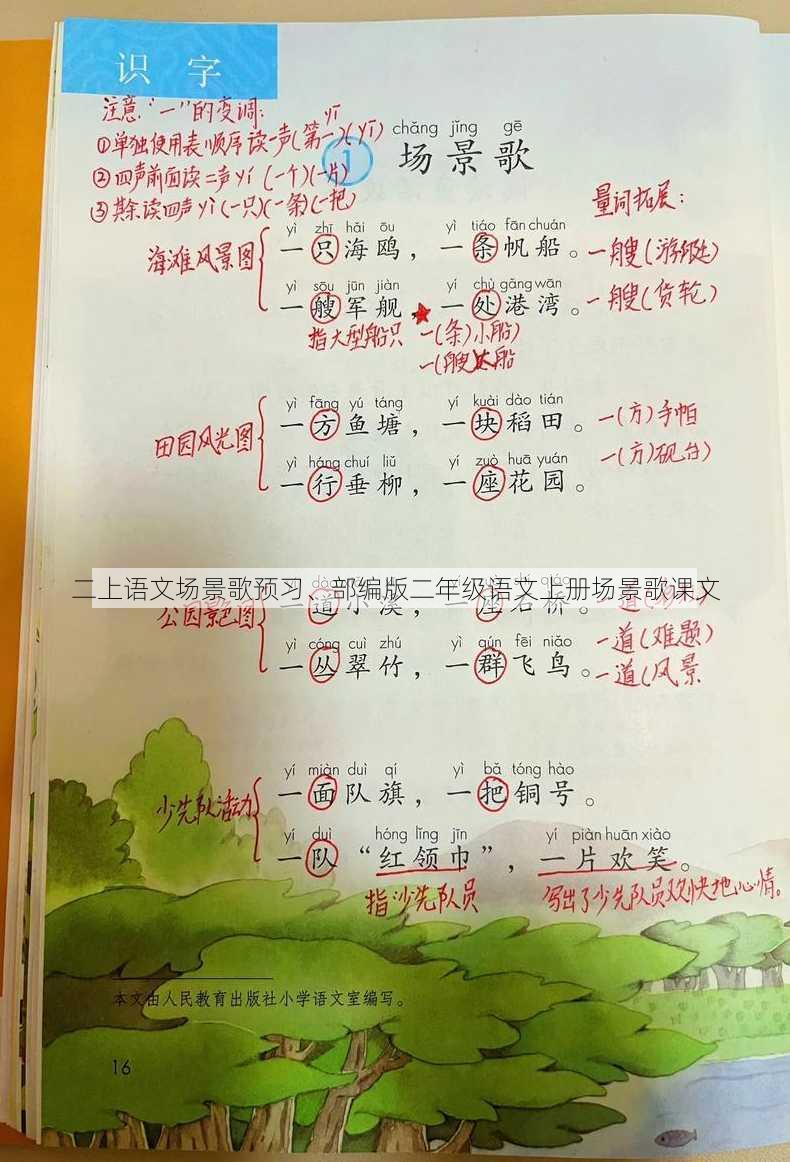 识 字
注意"一"的变调:
①单独使用表顺序读一声(第一)(yī)
yī
②四声前面读二声yí (一个)(一片)
③其余读四声yì(一只)(一条)(一把)
chǎng jǐng gē
1 场景歌
量词拓展:
yì zhī hǎi ōu yì tiáo fān chuán
海滩风景图 一只海鸥，一条帆船。一艘(游艇)
yì sōu jūn jiàn yí chù gǎng wān
一艘军舰 ★ 一处港湾。一艘(货轮)
指大型船只 一(条)小船)
一(艘)大船
yì fāng yú táng yí kuài dào tián
田园风光图 一方鱼塘，一块稻田。一(方)手帕
yì háng chuí liǔ yí zuò huā yuán
一行垂柳，一座花园。
一(方)砚台)
二上语文场景歌预习、部编版二年级语文上册场景歌课文
公园景色图 一道小溪，一座石桥。一道
yì cóng cuì zhú yì qún fēi niǎo
一丛翠竹，一群飞鸟。
一道(难题)
一道(风景
yí miàn duì qí yì bǎ tóng hào
少先队活动 一面队旗，一把铜号。
yí duì hóng lǐng jīn yí piàn huān xiào
一队“红领巾”，一片欢笑。
指少先队员 写出了少先队员欢快地心情。
本文由人民教育出版社小学语文室编写。
16